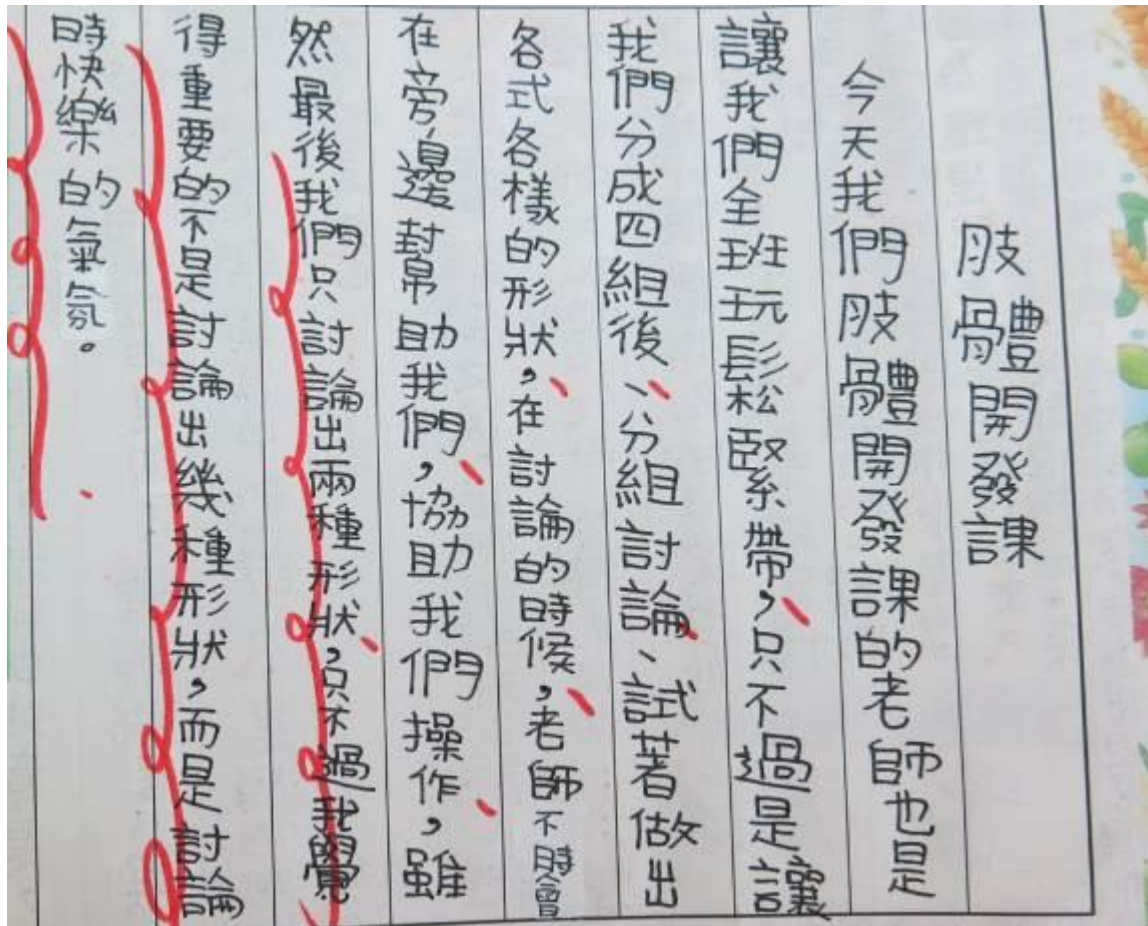 肢體開發課
今天我們肢體開發課的老師也是
讓我們全班玩鬆緊帶，只不過是讓
我們分成四組後、分組討論、試著做出
各式各樣的形狀，在討論的時候，老師不時會
在旁邊幫助我們，協助我們操作，雖
然最後我們只討論出兩種形狀，只不過我覺
得重要的不是討論出幾種形狀，而是討論
時快樂的氣氛。